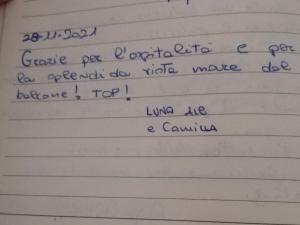 28-11-2021
Grazie per l'ospitalità e per
la splendida vista mare dal
balcone! TOP!
LUNA
e CAMILLA